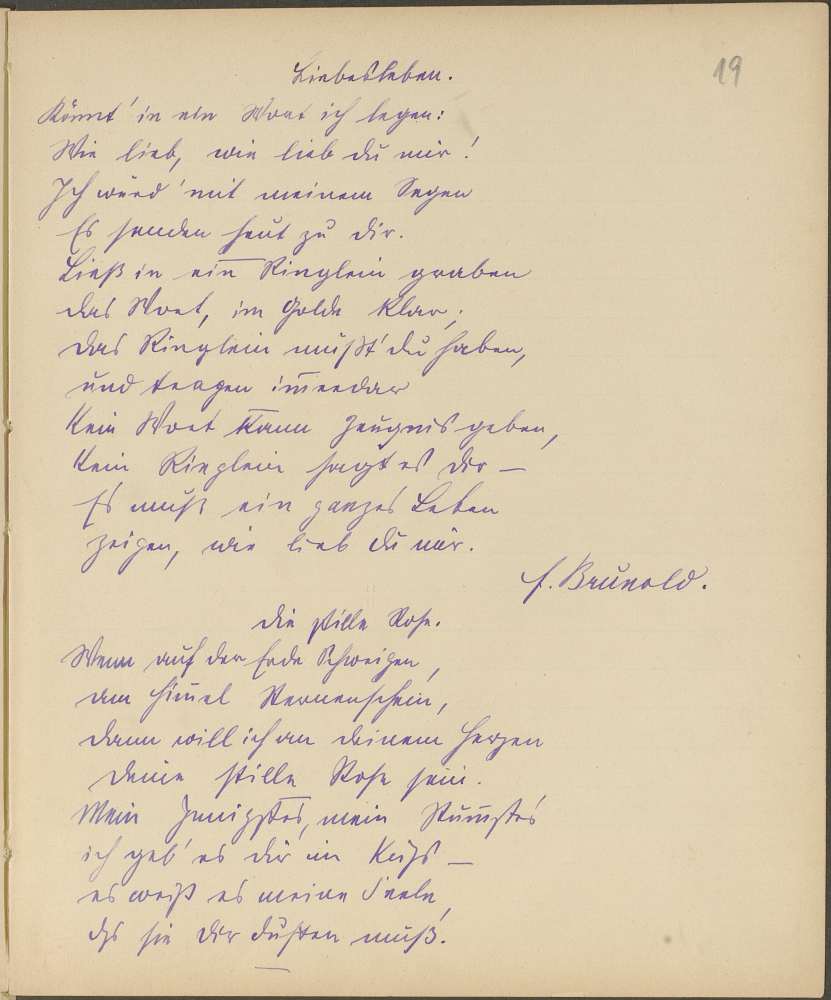 19
Liebesleben.
Könnt' in ein Wort ich legen:
Wie lieb, wie lieb du mir!
Ich würd' mit meinem Segen
Es senden heut zu dir.
Ließ in ein Ringlein graben
das Wort, im Golde klar;
das Ringlein müßt' du haben,
und tragen im̅erdar
Kein Wort kann Zeugnis geben,
Kein Ringlein sagt es dir —
Es muß ein ganzes Leben
zeigen, wie lieb du mir.
F. Brunold.
die stille Rose.
Wenn auf der Erde Schweigen,
am Him̅el Sternenschein,
dann will ich an deinem Herzen
deine stille Rose sein.
Mein Innigstes, mein Stum̅stes
ich geb' es dir im Kuß —
es weiß es meine Seele,
dß sie dir duften muß.